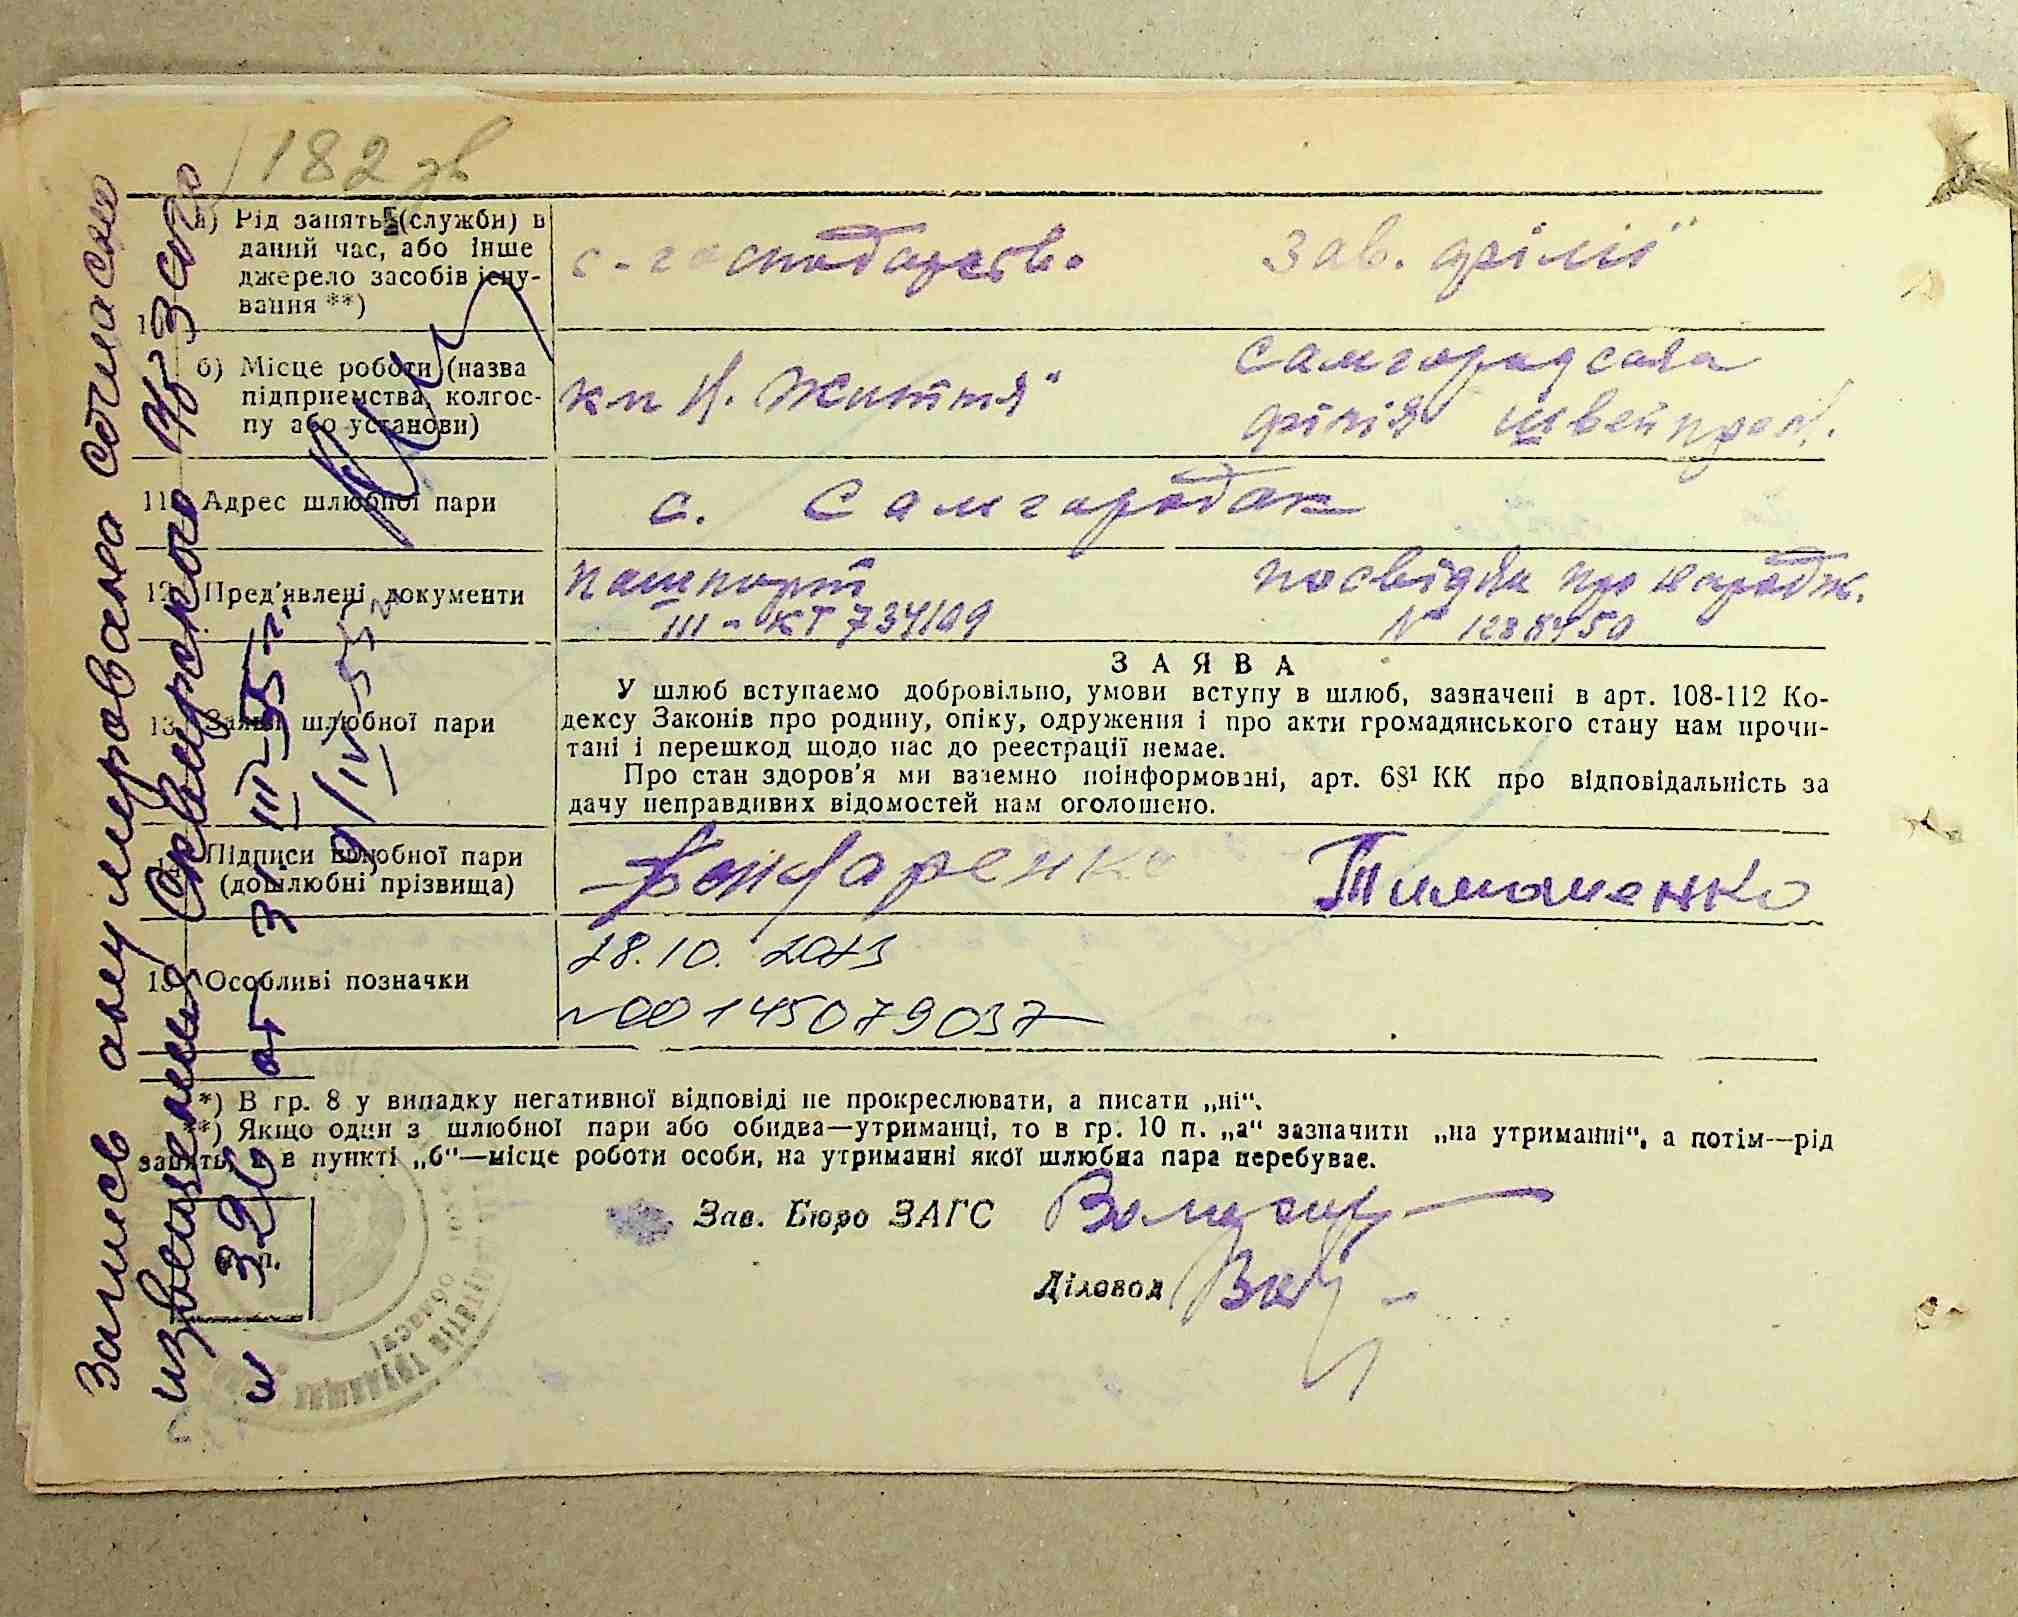 182 зв
а) Рід занять (служби) в
даний час, або інше
джерело засобів існу-
вання **)
с-господарство
Зав. філії
10
б) Місце роботи (назва
підприємства, колгос-
пу або установи)
кп Н. Життя"
Самгородська
філія швейпром.
11 Адрес шлюбної пари
с. Самгородок
12 Пред'явлені документи
пашпорт
III - КТ 734109
посвідчн про народж.
N 1288450
13 Заява шлюбної пари
ЗАЯВА
У шлюб вступаємо добровільно, умови вступу в шлюб, зазначені в арт. 108-112 Ко-
дексу Законів про родину, опіку, одруження і про акти громадянського стану нам прочи-
тані і перешкод щодо нас до реєстрації немає.
Про стан здоров'я ми взаємно поінформовані, арт. 68¹ КК про відповідальність за
дачу неправдивих відомостей нам оголошено.
Підписи шлюбної пари
(дошлюбні прізвища)
Бондаренко
Тимошенко
15 Особливі позначки
28.10. 2013
~00145079037
*) В гр. 8 у випадку негативної відповіді не прокреслювати, а писати „ні“.
**) Якщо один з шлюбної пари або обидва—утриманці, то в гр. 10 п. „а“ зазначити „на утриманні“, а потім—рід
занять, а в пункті „б“—місце роботи особи, на утриманні якої шлюбна пара перебуває.
Зав. Бюро ЗАГС
Діловод
Запись анулирована согласно
извещения Сквирского РБ ЗАГС
N 326 от 31 III-55 г.
9/IV-55 г